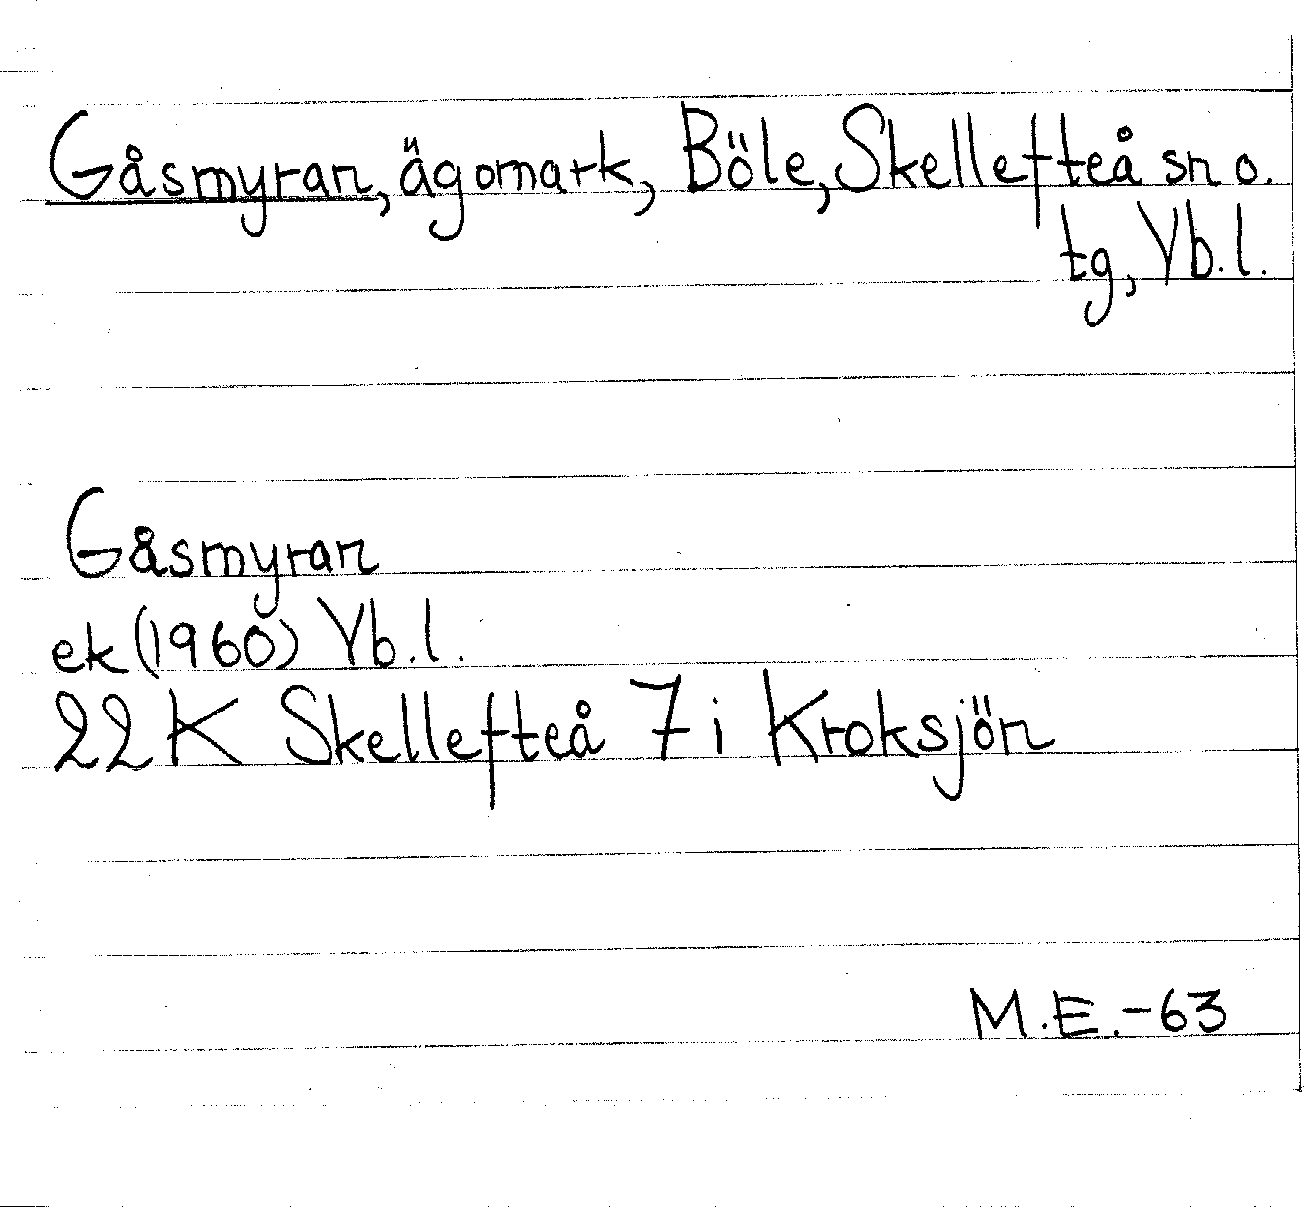 Gåsmyran, ägomark, Böle, Skellefteå sn o.
tg, Vb.l.
Gåsmyran
ek (1960) Vb.l.
22K Skellefteå 7i Kroksjön
M.E.-63